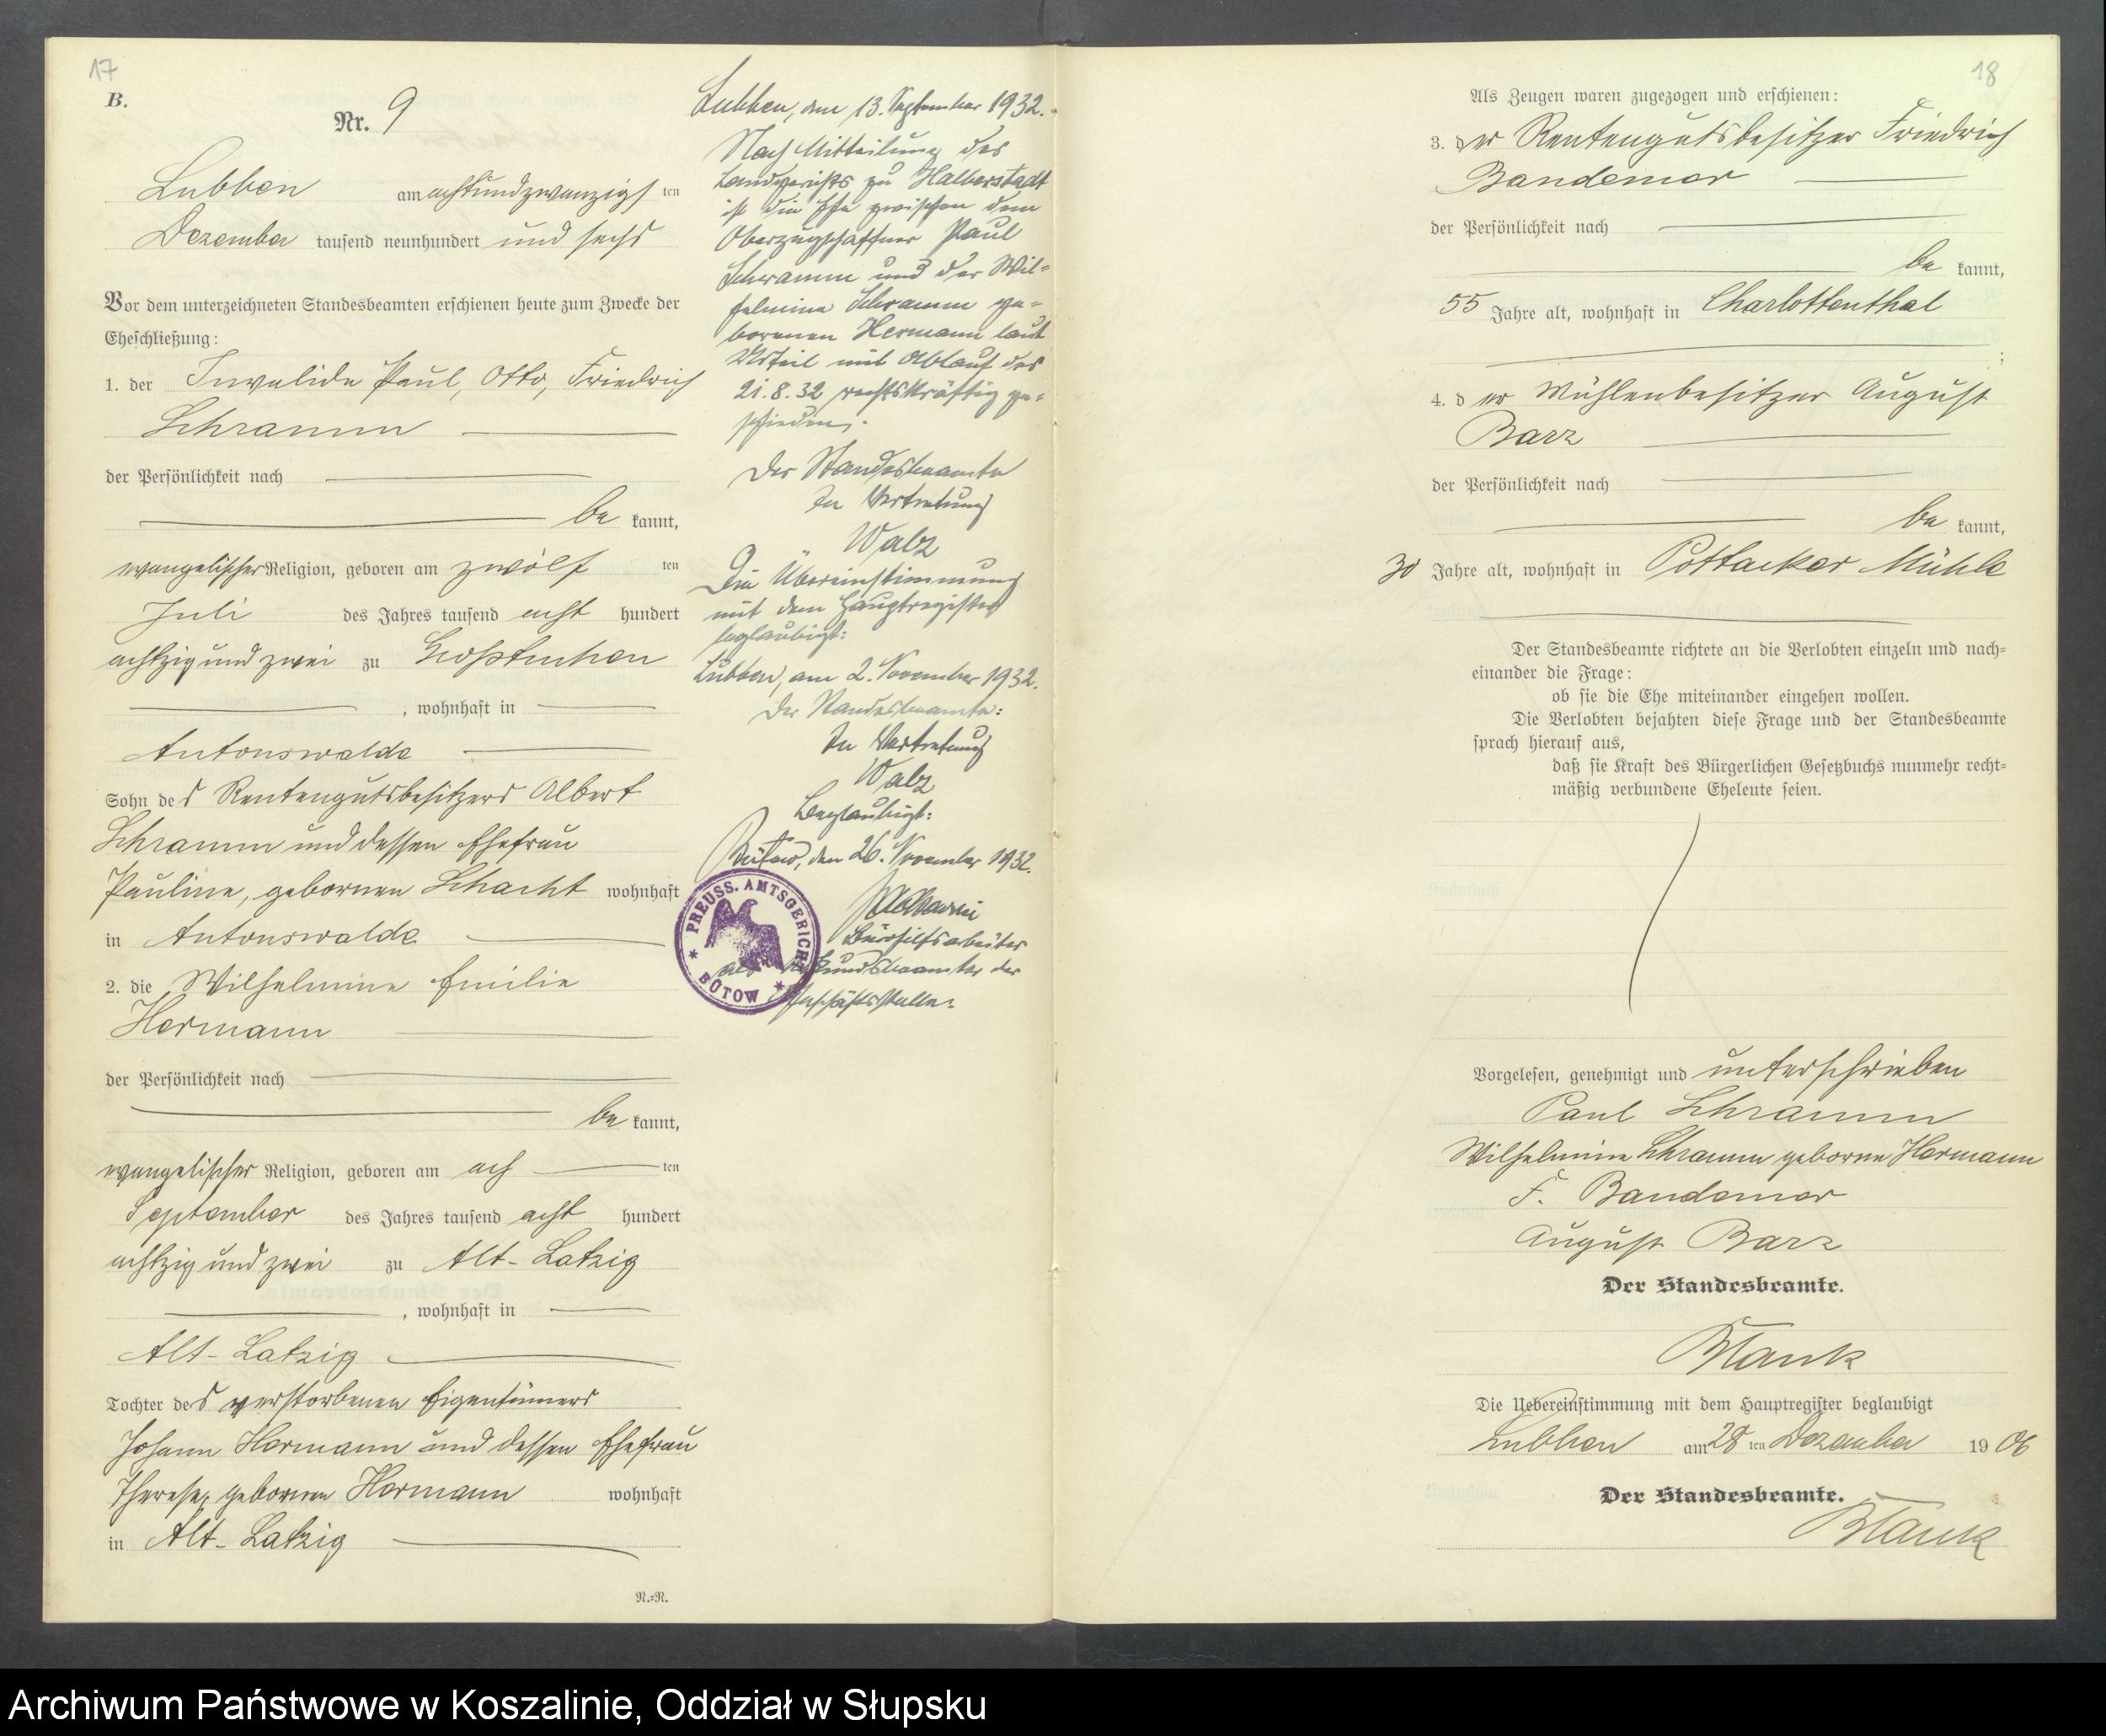 17
B.
Nr. 9
Lubben am achtundzwanzigsten
Dezember tausend neunhundert und sechs
Vor dem unterzeichneten Standesbeamten erschienen heute zum Zwecke der
Eheschließung:
1. der Invalide Paul, Otto, Friedrich
Schramm
der Persönlichkeit nach
be kannt,
evangelischer Religion, geboren am zwölf ten
Juli des Jahres tausend acht hundert
achtzig und zwei zu Großtuchen
, wohnhaft in
Antonswalde
Sohn des Rentengutsbesitzers Albert
Schramm und dessen Ehefrau
Pauline, gebornen Schacht wohnhaft
in Antonswalde
2. die Wilhelmine Emilie
Hermann
der Persönlichkeit nach
be kannt,
evangelischer Religion, geboren am ach ten
September des Jahres tausend acht hundert
achtzig und zwei zu Alt-Latzig
, wohnhaft in
Alt-Latzig
Tochter des verstorbenen Eigentümers
Johann Hermann und dessen Ehefrau
Therese, gebornen Hermann wohnhaft
in Alt-Latzig
N.=N.
Lubben, den 13. September 1932.
Nach Mitteilung des
Landgerichts zu Halberstadt
ist die Ehe zwischen dem
Oberzugschaffner Paul
Schramm und der Wil=
helmine Schramm ge=
borenen Hermann laut
Urteil mit Ablauf des
21.8.32 rechtskräftig ge=
schieden.
Der Standesbeamte
In Vertretung
Walz
Die Übereinstimmung
mit dem Hauptregister
beglaubigt:
Lubben, am 2. November 1932.
Der Standesbeamte:
In Vertretung
Walz
Beglaubigt:
Bütow, den 26. November 1932.
Bürohilfsarbeiter
als Urkundsbeamter der
Geschäftsstelle.
PREUSS. AMTSGERICHT
* BÜTOW *
18
Als Zeugen waren zugezogen und erschienen:
3. der Rentengutsbesitzer Friedrich
Bandemer
der Persönlichkeit nach
be kannt,
55 Jahre alt, wohnhaft in Charlottenthal
;
4. der Mühlenbesitzer August
Barz
der Persönlichkeit nach
be kannt,
30 Jahre alt, wohnhaft in Pottacker Mühle
Der Standesbeamte richtete an die Verlobten einzeln und nach=
einander die Frage:
ob sie die Ehe miteinander eingehen wollen.
Die Verlobten bejahten diese Frage und der Standesbeamte
sprach hierauf aus,
daß sie Kraft des Bürgerlichen Gesetzbuchs nunmehr recht=
mäßig verbundene Eheleute seien.
Vorgelesen, genehmigt und unterschrieben
Paul Schramm
Wilhelmine Schramm geborne Hermann
F. Bandemer
August Barz
Der Standesbeamte.
Blank
Die Uebereinstimmung mit dem Hauptregister beglaubigt
Lubben am 28 ten Dezember 1906
Der Standesbeamte.
Blank
Archiwum Państwowe w Koszalinie, Oddział w Słupsku